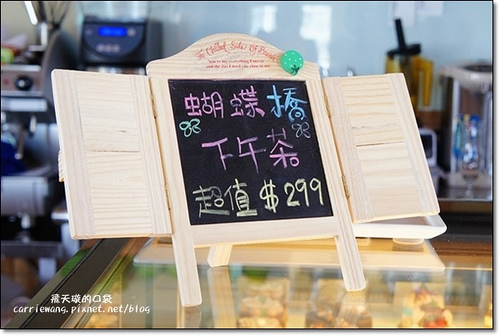 蝴蝶橋
下午茶
超值$299
飛天璇的口袋
carriewang.pixnet.net/blog